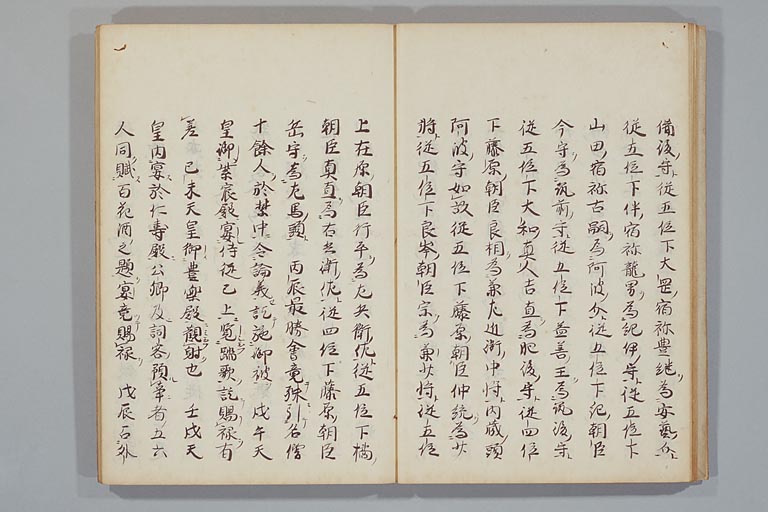 備後守従五位下大岡宿祢豊継為安藝介
従五位下伴宿祢龍男為紀伊守従五位下
山田宿祢古嗣為阿波介従五位下紀朝臣
今守為筑前守従五位下益善王為筑後守
従五位下大和真人吉直為肥後守従四位
下藤原朝臣良相為兼左近衛中将内蔵頭
阿波守如故従五位下藤原朝臣仲統為少
将従五位下良岑朝臣宗為兼少将従五位
上在原朝臣行平為左兵衛佐従五位下橘
朝臣真直為右兵衛佐従四位下藤原朝臣
岳守為左馬頭　丙辰最勝會竟殊引名僧
十餘人於禁中令論義訖施御被　戊午天
皇御紫宸殿宴侍従已上覧踏歌訖賜禄有
差　已未天皇御豊樂殿觀射也　壬戌天
皇内宴於仁壽殿公卿及詞客預事者五六
人同賦百花酒之題宴竟賜禄　戊辰石外